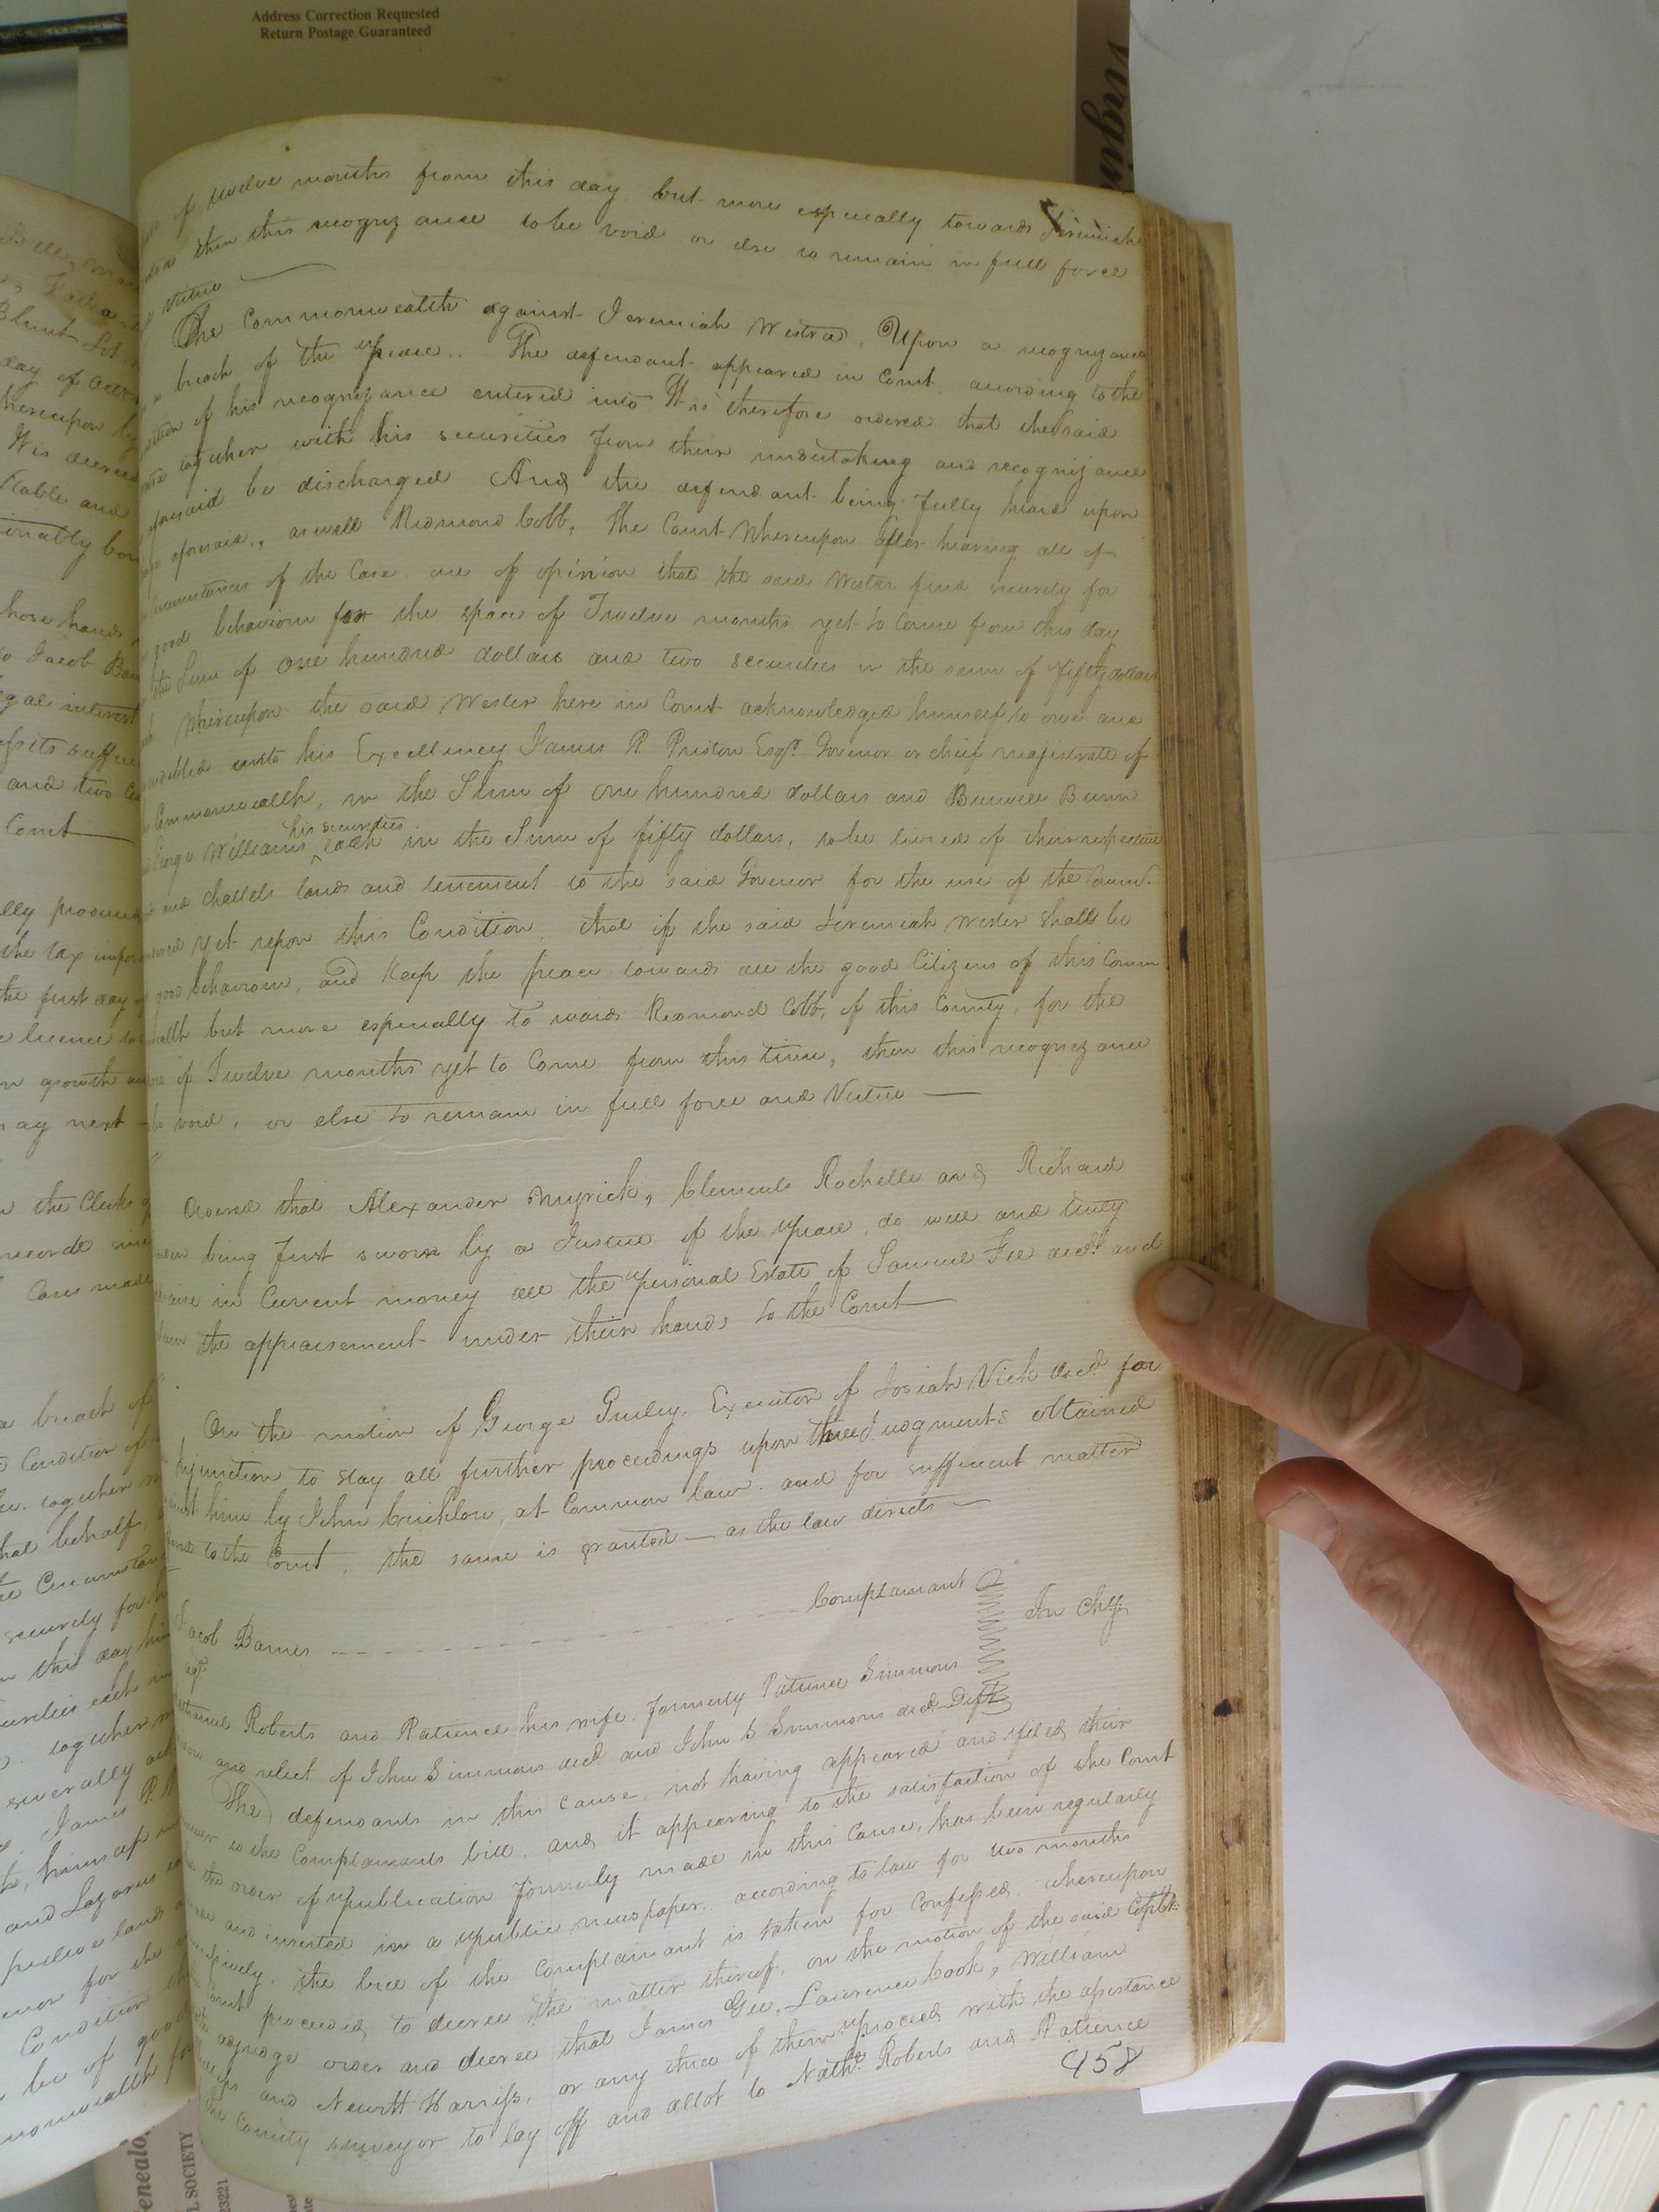 Address Correction Requested
Return Postage Guaranteed
Virgin
of twelve months from this day but more especially towards Jeremiah
then this recognizance to be void or else to remain in full force
virtue
The Commonwealth against Jeremiah Wester. Upon a recognizance
breach of the peace. The defendant appeared in Court according to the
of his recognizance entered into It is therefore ordered that the said
together with his securities from their undertaking and recognizance
aforesaid be discharged And the defendant being fully heard upon
aforesaid, as well Redmond Cobb, The Court Whereupon after hearing all of
circumstances of the Case are of opinion that the said Wester find security for
good behaviour for the space of Twelve months yet to Come from this day
the Sum of One hundred dollars and two securities in the sum of fifty dollars
Whereupon the said Wester here in Court acknowledged himself to owe and
indebted unto his Excellency James P. Preston Esqr. Govenor or chief magistrate of
Commonwealth, in the Sum of One hundred dollars and Burwell Bunn
his securities
George Williams each in the Sum of fifty dollars, to be livied of their respective
and chattels lands and tenement to the said Govenor for the use of the Comm.
yet upon this Condition, that if the said Jeremiah Wester shall be
good behaviour, and Keep the peace towards all the good Citizens of this Comm
but more especually to wards Redmond Cobb, of this County, for the
of Twelve months yet to Come from this time, then this recognizance
void, or else to remain in full force and Virtue
Ordered that Alexander Myrick, Clements Rochelle and Richard
being first sworn by a Justice of the peace, do well and truly
in Current money all the personal Estate of Samuel Fee decd. and
the appraisement under their hands to the Court
On the motion of George Gurley, Executor of Josiah Vick decd. for
Injunction to stay all further proceedings upon three Judgments obtained
him by John Crichlow, at Common law, and for sufficient matter
to the Court, the same is granted — as the law directs
Jacob Barnes Complainant
In Chy.
agt.
Roberts and Patience his wife, formerly Patience Simmons
and relict of John Simmons decd. and John S Simmons decd. Defts
The defendants in this cause, not having appeared and filed their
to the Complainants bill, and it appearing to the satisfaction of the Court
the order of publication formerly made in this Cause, has been regularly
and inserted in a public newspaper, according to law for two months
the bill of the Complainant is taken for Confessed, whereupon
Court proceeded to decree the matter thereof, on the motion of the said Complt.
adjudge order and decree that James Gee, Laurence Cook, William
and Newitt Harriss, or any three of them proceed with the assistance
the County surveyor to lay off and allot to Nathl. Roberts and Patience
458
Blunt
day of
hereupon
Wis decreed
stable and
whose hands
to Jacob
legal interest
and two
Court
the tax
the first day
licence
growth
may next
in the Clerks
records
Cases made
a breach of
Condition of
together
that behalf
Circumstan
security for
this day
each in
together
severally
James P.
himself
and Lazarus
lands
for the
Condition
be of good
for
enealo
L SOCIETY
23221